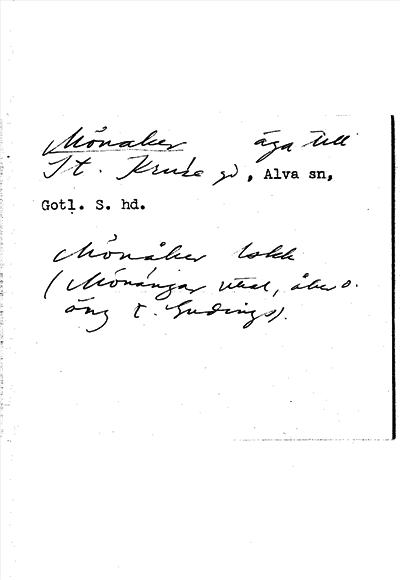 Mönaker äga till
St. Kruse gd, Alva sn,
Gotl. S. hd.
Mönåker
(Mönängar utat, åker o.
äng t. Gudings).